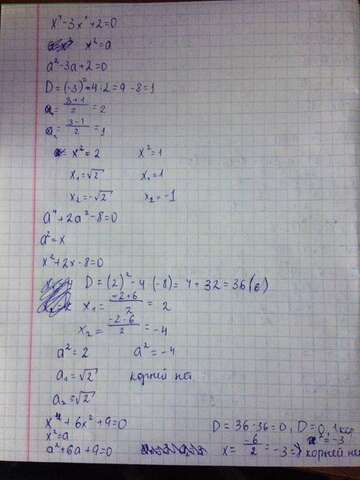 x⁴-3x²+2=0
x²=a
a²-3a+2=0
D=(-3)²-4·2=9-8=1
a₁=(3+1)/2=2
a₂=(3-1)/2=1
x²=2 x²=1
x₁=√2 x₁=1
x₂=-√2 x₂=-1
a⁴+2a²-8=0
a²=x
x²+2x-8=0
D=(2)²-4·(-8)=4+32=36(6)
x₁=(-2+6)/2=2
x₂=(-2-6)/2=-4
a²=2 a²=-4
a₁=√2 корней нет
a₂=√2
x⁴+6x²+9=0 D=36-36=0, D=0, 1 кор
x²=a x=-6/2=-3 x²=-3
a²+6a+9=0 => корней нет